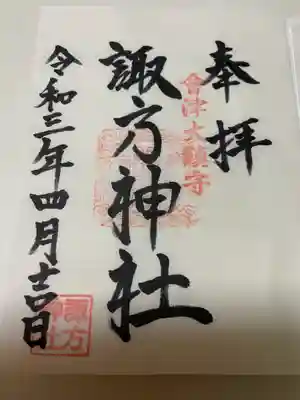 奉拝
會津大鎮守
諏方神社
令和三年四月吉日
諏方神社